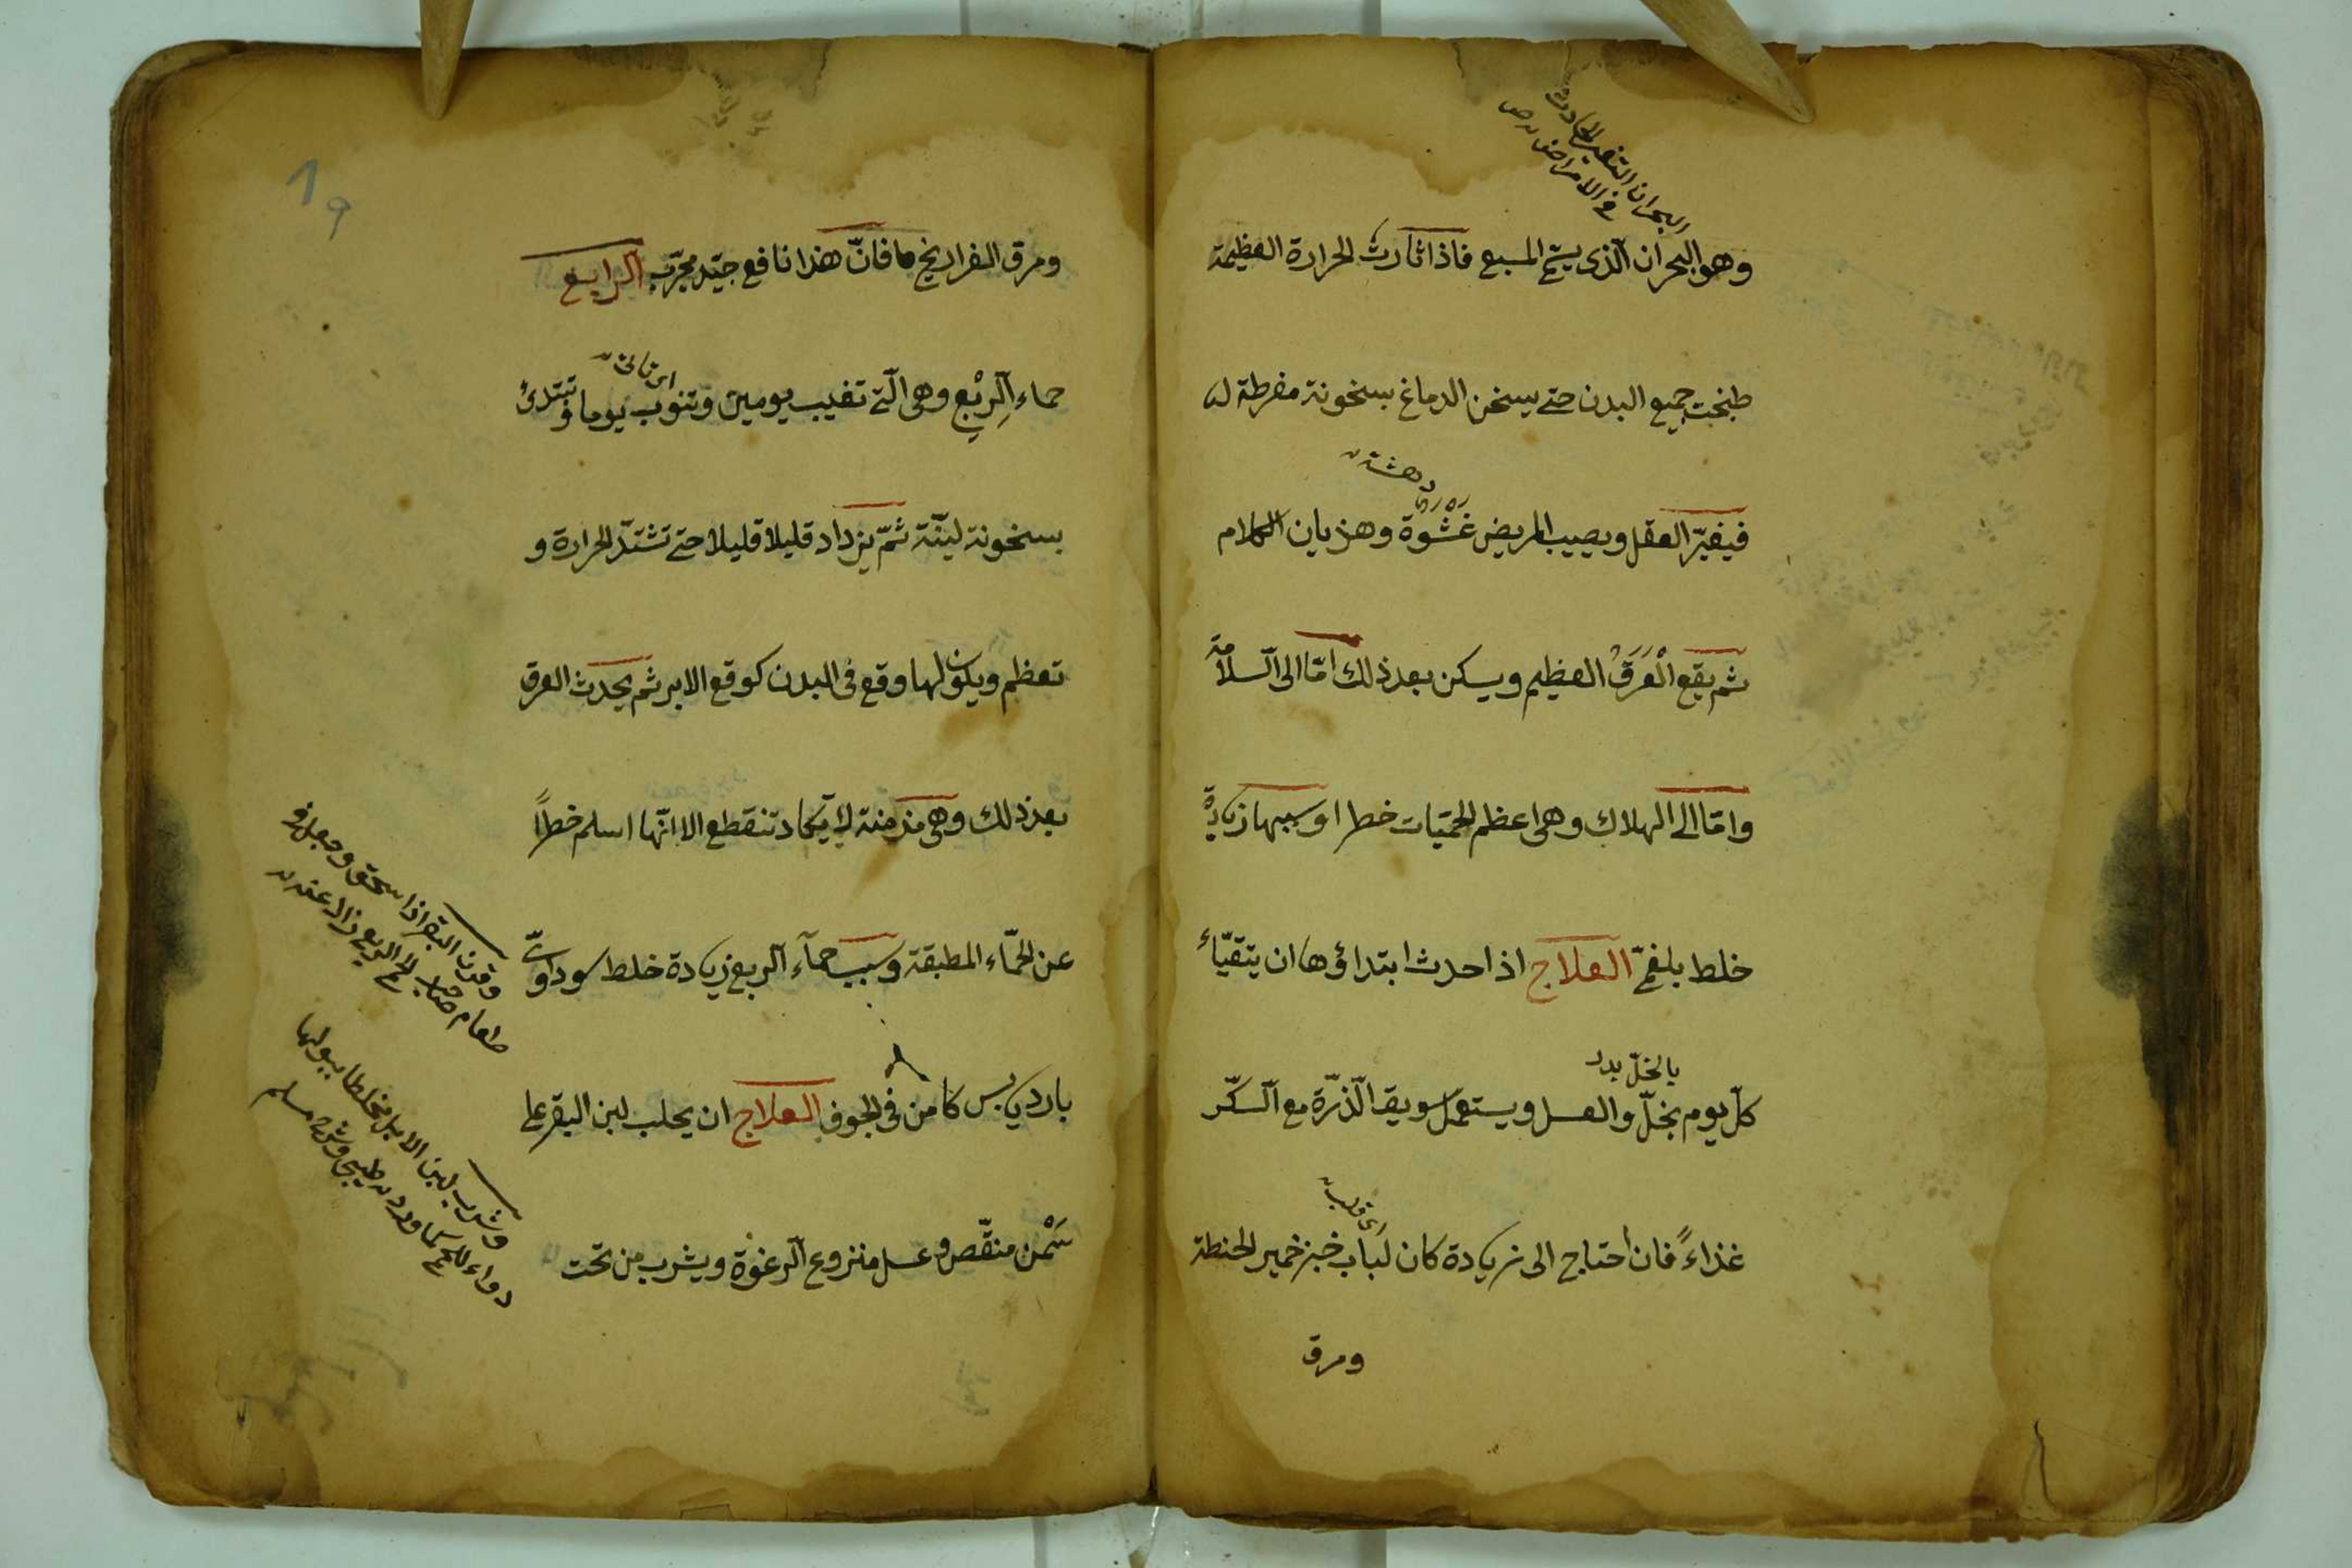 البحران التغير الحادث
في الامراض
وهو البحران الّذى يسمّى المسبع فاذا ثارت الحرارة العظيمة
طبخت جميع البدن حتى يسخن الدماغ بسخونة مفرطة
دهشة
فيغيّر العقل ويصيب المريض غشوة وهذيان الكلام
ثم يقع الْعَرَقُ العظيم ويسكن بعد ذلك امّا الى السلامة
وامّا الى الهلاك وهى اعظم الحمّيات خطرا وسببها زيادة
خلط بلغمىّ العلاج اذا حدث ابتداؤها ان يتقيّاء
بالخلّ بدر
كلّ يوم بخلّ والعسل ويستعمل سويق الّذرّة مع السكّر
اى قلب
غذاءً فان احتاج الى زيادة كان لباب خبز خمير الحنطة
ومرق
19
ومرق الفراريخ ما فانّ هذا نافع جيّد مجرّب الرابع
اى تاتى
حماء الرِبْع وهى الّتى تغيب يومين وتنوب يوما و تبتدئ
بسخونة لينّة ثمّ يزداد قليلا قليلا حتى تشتدّ الحرارة و
تعظم ويكون لها وقع فى البدن كوقع الابر ثم يحدث العرق
بعد ذلك وهى مزمنة لا تكاد تنقطع الا انّها اسلم خطراً
عن الحمّاء المطبقة وسبب حمآء الربع زيادة خلط سوداوىّ
بارد يابس كامن فى الجوف العلاج ان يحلب لبن البقر على
سَمْن منقّص وعسل منزوع الرغوة ويشرب من تحت
وقرن البقر اذا سحق وجعل فى
طعام صاحب الحمى الربع زال عنه
وشرب لبن الابل مخلطا ببولها
دواء للحمى كما ورد